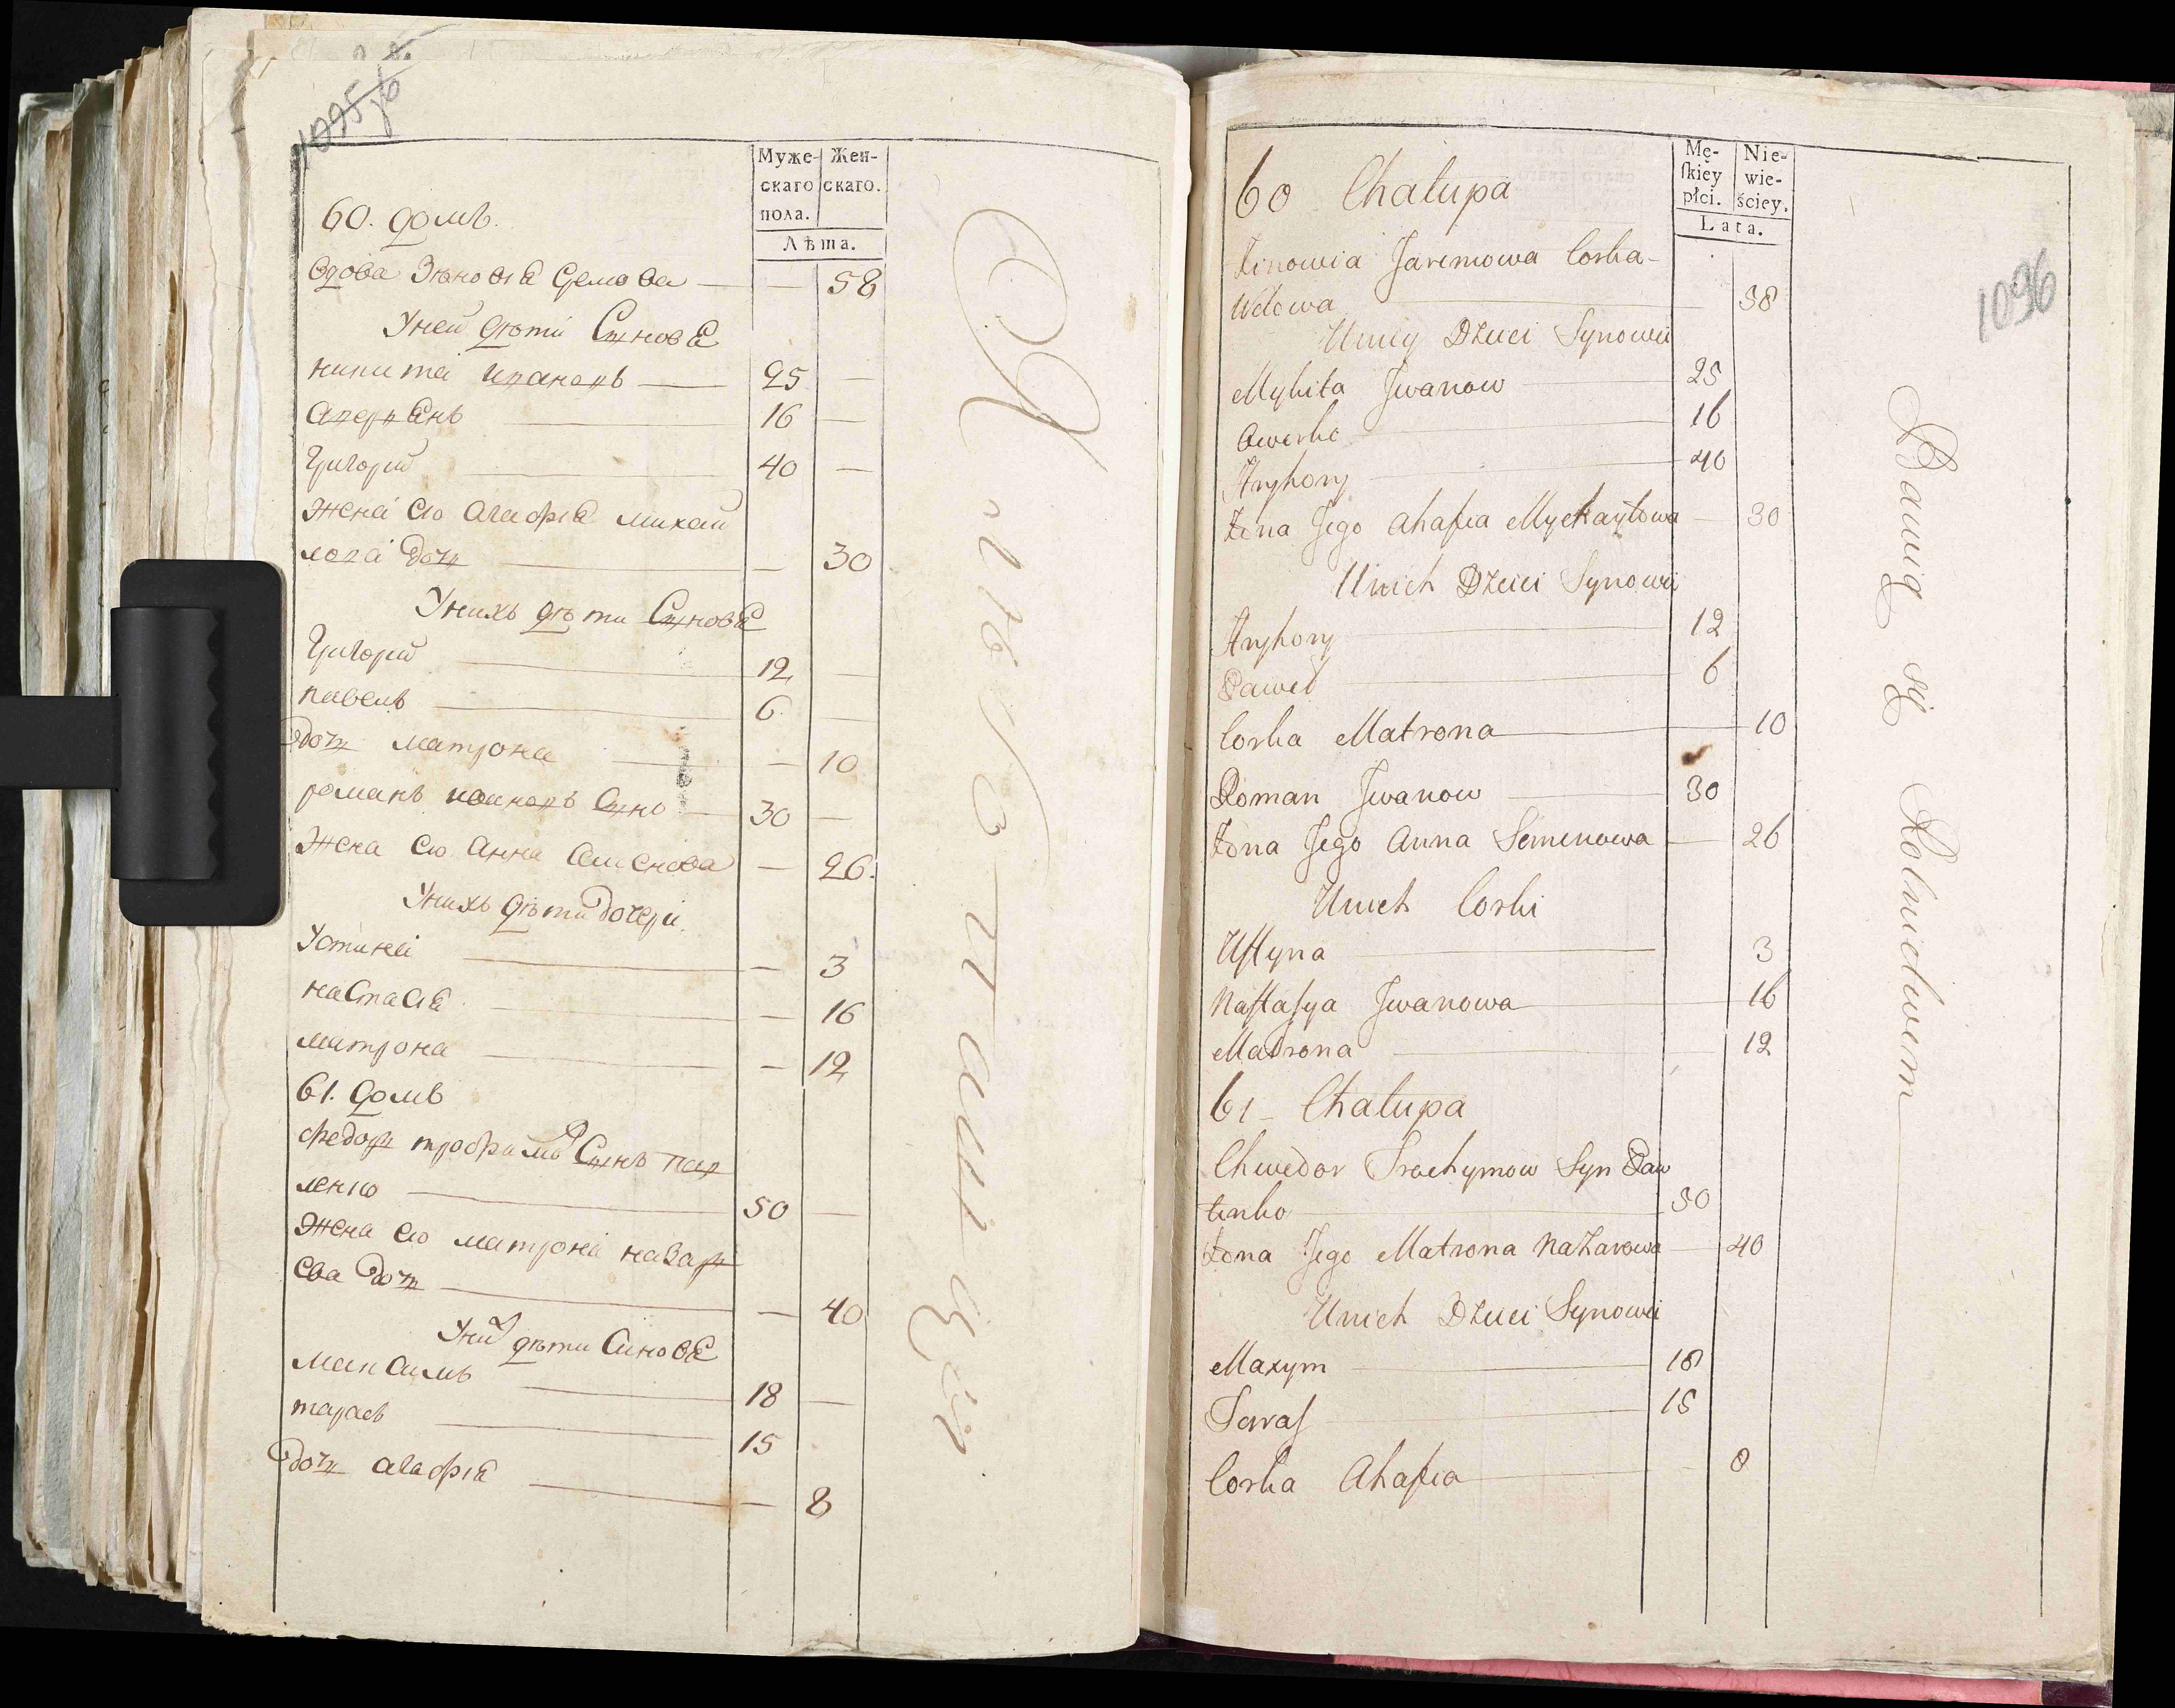 1095 об
Муже-
скаго
пола.
Жен-
скаго.
Лѣта.
60. домъ.
вдова Зѣновія — — 58
Уней дѣти Сынове
никита ивановъ — 25 —
аверянъ — 16 —
Григорій — 40 —
жена его агафія михаи
лова дочь — — 30
Унихъ дѣти Сынове
Григорій — 12 —
павелъ — 6 —
дочь матрона — — 10
романъ ивановъ Сынъ — 30 —
жена его анна Семенова — 26.
Унихъ дѣти дочери.
Устина — — 3
настасія — — 16
матрона — — 12
61. домъ
федоръ трофимовъ Сынъ пав
ленко — 50 —
жена его матрона назар
ева дочь — — 40
Уних дѣти Синове
максимъ — 18 —
тарасъ — 15
дочь агафія — — 8
1096
Mę-
ſkiey
płci.
Nie-
wie-
ściey.
Lata.
60 Chałupa
Zinowia Jaremowa Corka
Wdowa — 58
Uniey Dzieci Synowie
Mykita Jwanow — 25
Awerko — 16
Hryhory — 40
Żona Jego Ahafia Mychayłowa — 30
Unich Dzieci Synowie
Hryhory — 12
Paweł — 6
Corka Matrona — 10
Roman Jwanow — 30
Żona Jego Anna Semenowa — 26
Unich Corki
Uſtyna — 3
Naſtaſya Jwanowa — 16
Matrona — 12
61 Chałupa
Chwedor Trochymow Syn Paw
łenko — 50
Żona Jego Matrona Nazarowa — 40
Unich Dzieci Synowie
Maxym — 18
Taraſ — 15
Corka Ahafia — 8
Bawią się Rolnictwem